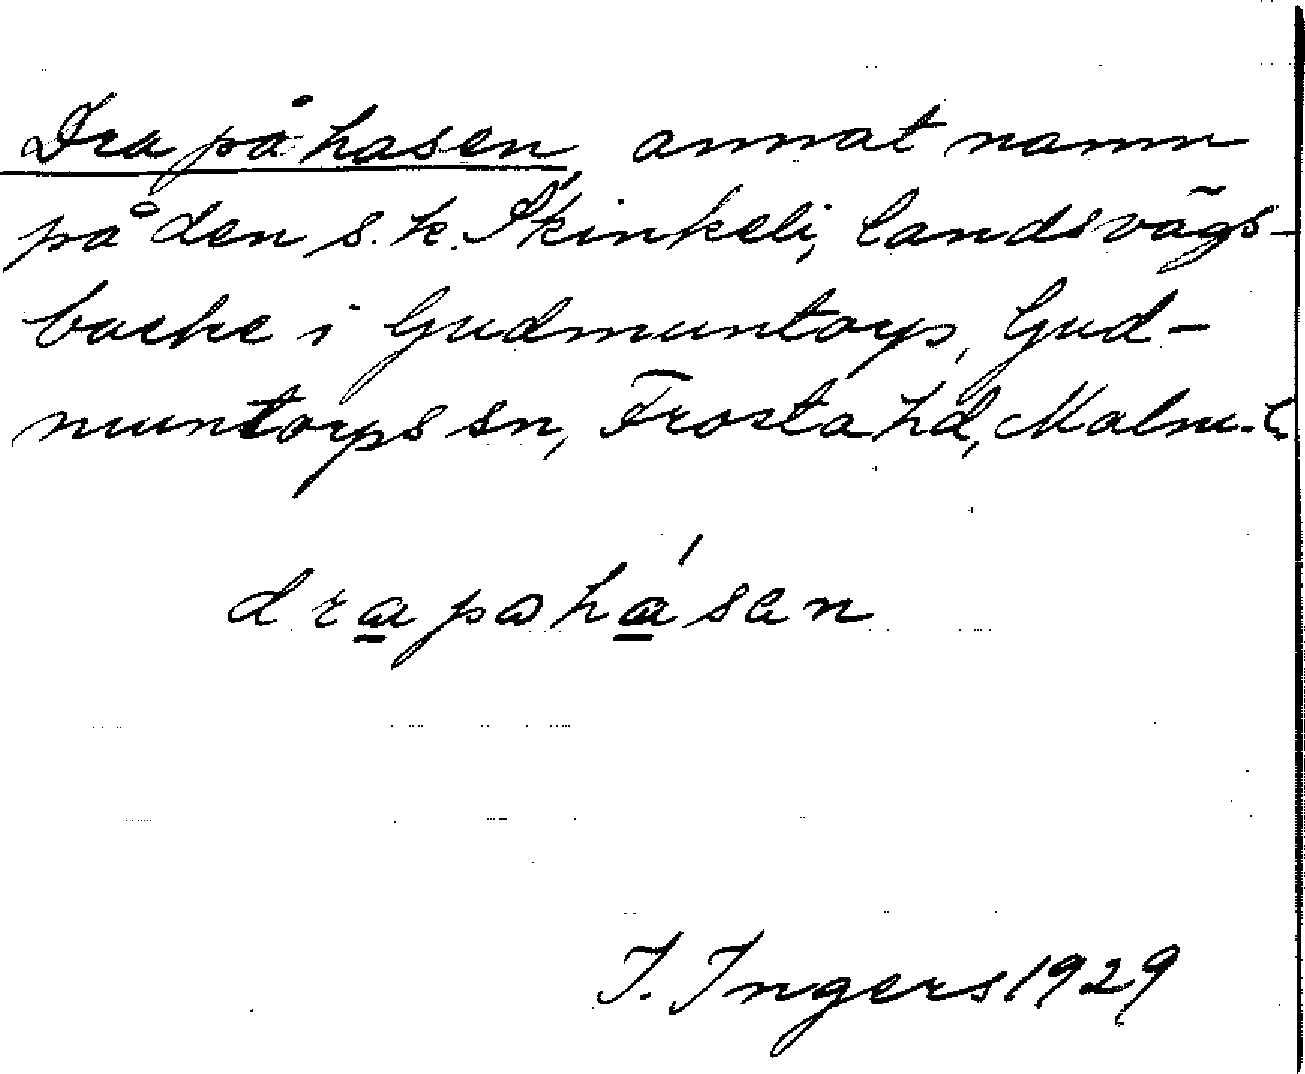 Dra på hasen, annat namn
på den s.k. Skinkeli, landsvägs-
backe i Gudmuntorps, Gud-
muntorps sn, Frosta hd, Malm. l.
drapåhása̱n
I. Ingers 1929